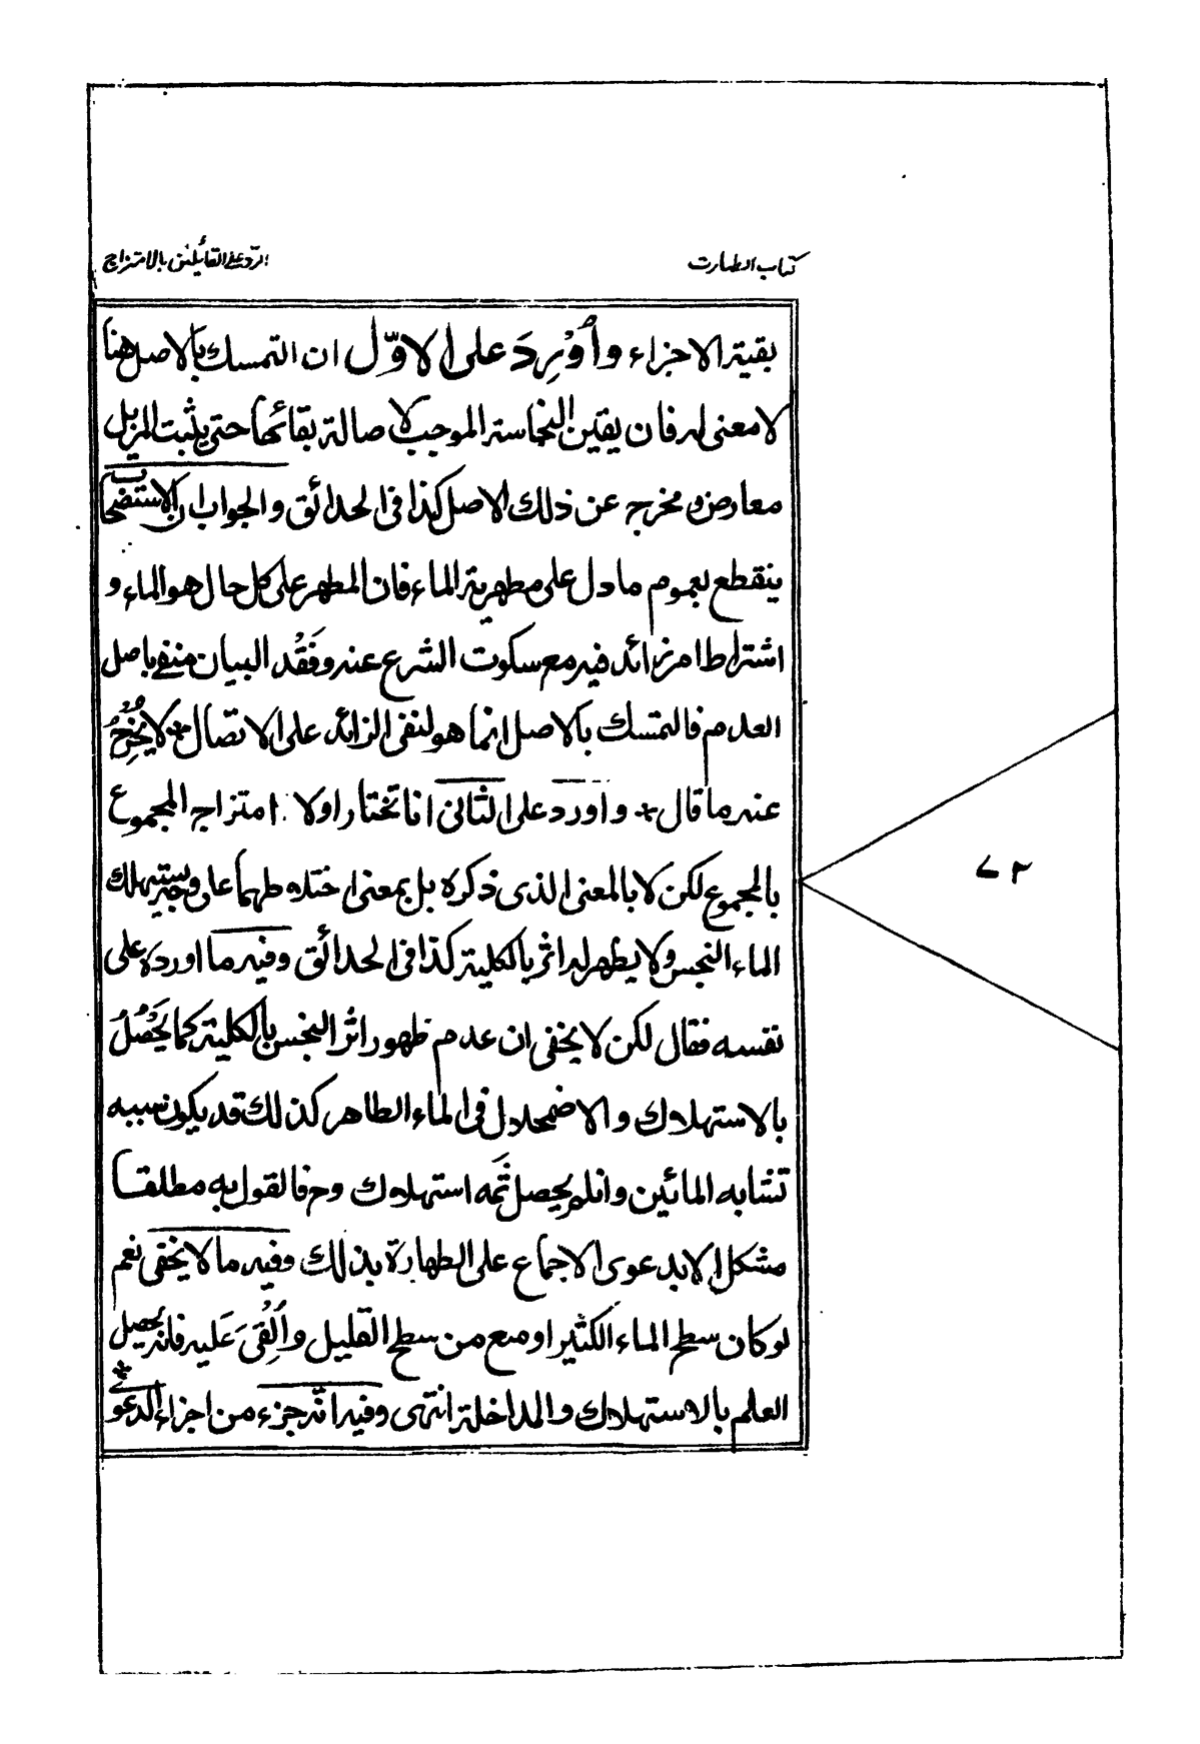 كتاب الطهارت
الرّد على القائلين بالامتزاج
بقية الاجزاء وأُوْرِدَ على الاوّل ان التمسك بالاصل هنا
لا معنى له فان يقين النجاسة الموجب لاصالة بقائها حتى يثبت المزيل
معارض و مخرج عن ذلك الاصل كذا فى الحدائق والجواب ان الاستصحاب
ينقطع بعموم ما دل على مطهرية الماء فان المطهر على كل حال هو الماء و
اشتراط امر زائد فيه مع سكوت الشرع عنه وفَقْد البيان منفے باصل
العدم فالتمسك بالاصل انما هو لنفى الزائد على الاتصال * لا يُخْرِجُ
عنه ما قال * واورد على الثانى انا تختار اولا امتزاج المجموع
بالمجموع لكن لا بالمعنى الذى ذكره بل بمعنى اختلاطهما على وجه يستهلك
الماء النجس ولا يظهر له اثر بالكلية كذا فى الحدائق وفيه ما اورده على
نفسه فقال لكن لا يخفى ان عدم ظهور اثر النجس بالكلية كما يَحْصُلُ
بالاستهلاك والاضمحلال فى الماء الطاهر كذلك قد يكون سببه
تشابه المائين وان لم يحصل ثَمه استهلاك وح فالقول به مطلقا
مشكل الا بدعوى الاجماع على الطهارة بذلك وفيه ما لا يخفى نعم
لو كان سطح الماء الكثير اوسع من سطح القليل وأُلْقِىَ عَليه فانه يحصل
العلم بالاستهلاك والمداخلة انتهى وفيه انّه جزء من اجزاء الدعوے *
٧٢